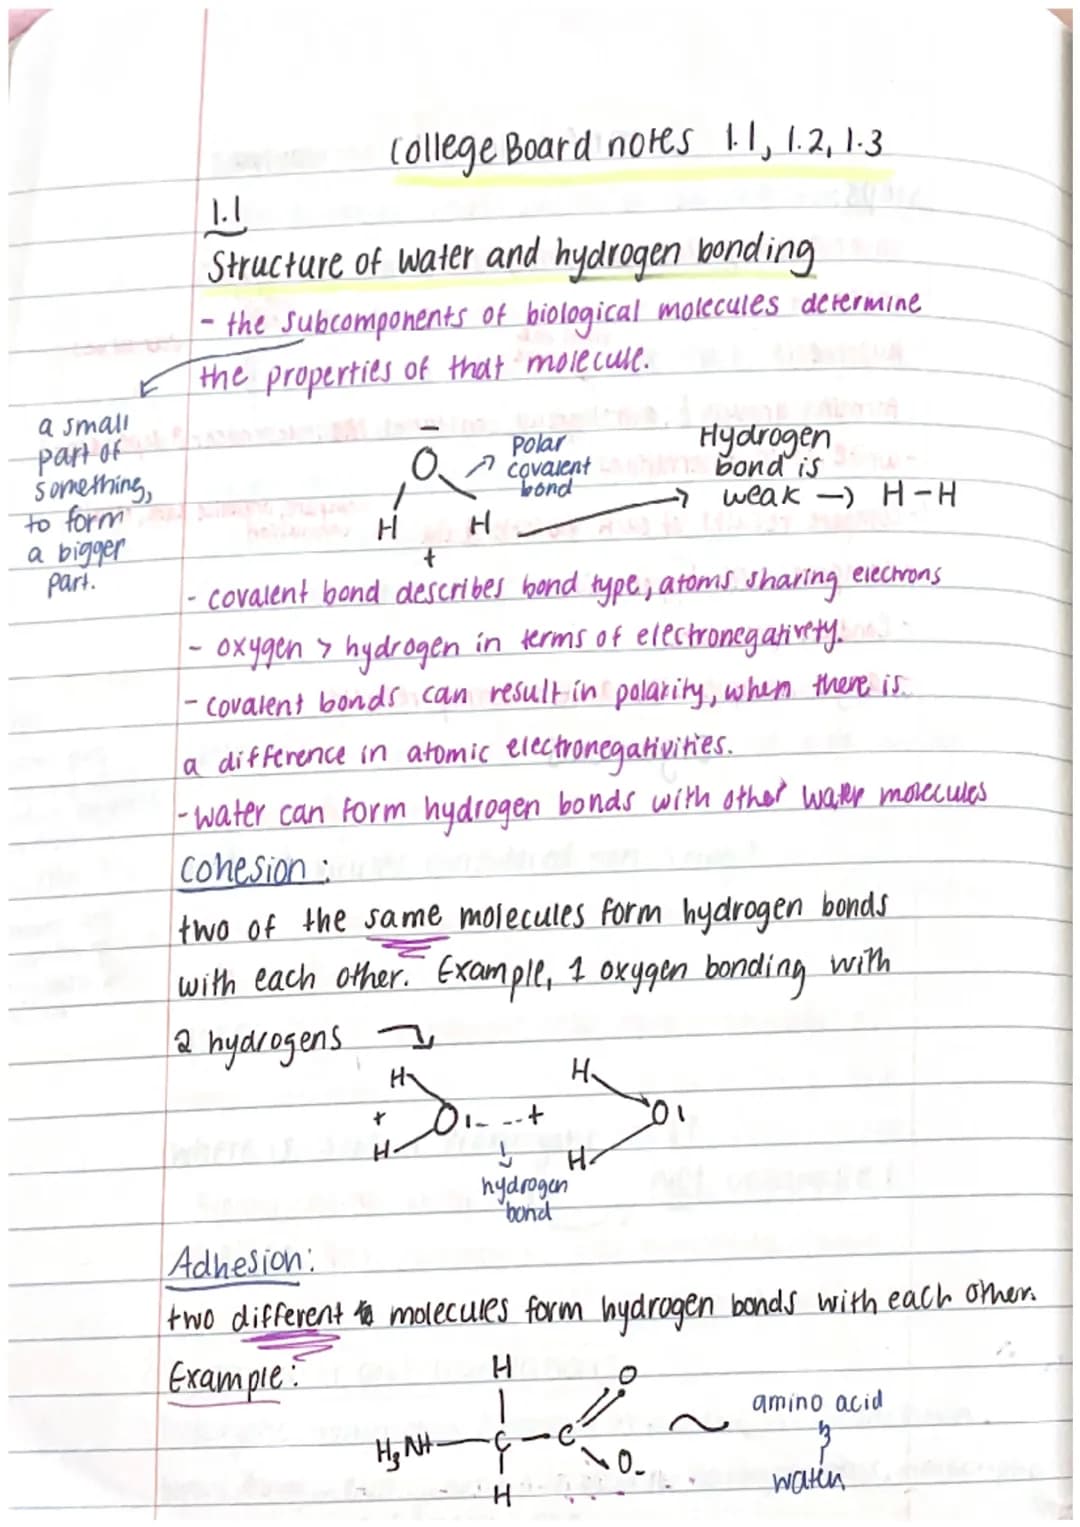 College Board notes 1.1, 1.2, 1.3
1.1
Structure of water and hydrogen bonding
- the subcomponents of biological molecules determine
the properties of that molecule.
a small
part of
something,
to form
a bigger
part.
−
O
H H
+
Polar
covalent
bond
Hydrogen
bond is
weak → H-H
- covalent bond describes bond type, atoms sharing electrons
- oxygen > hydrogen in terms of electronegativety.
- covalent bonds can result in polarity, when there is
a difference in atomic electronegativities.
- water can form hydrogen bonds with other water molecules
Cohesion:
two of the same molecules form hydrogen bonds
with each other. Example, 1 oxygen bonding with
2 hydrogens
H H
+ O - + O
H H
hydrogen
bond
Adhesion:
two different molecules form hydrogen bonds with each other.
Example:
H O
H3N+ C C
H O-
amino acid
&
water